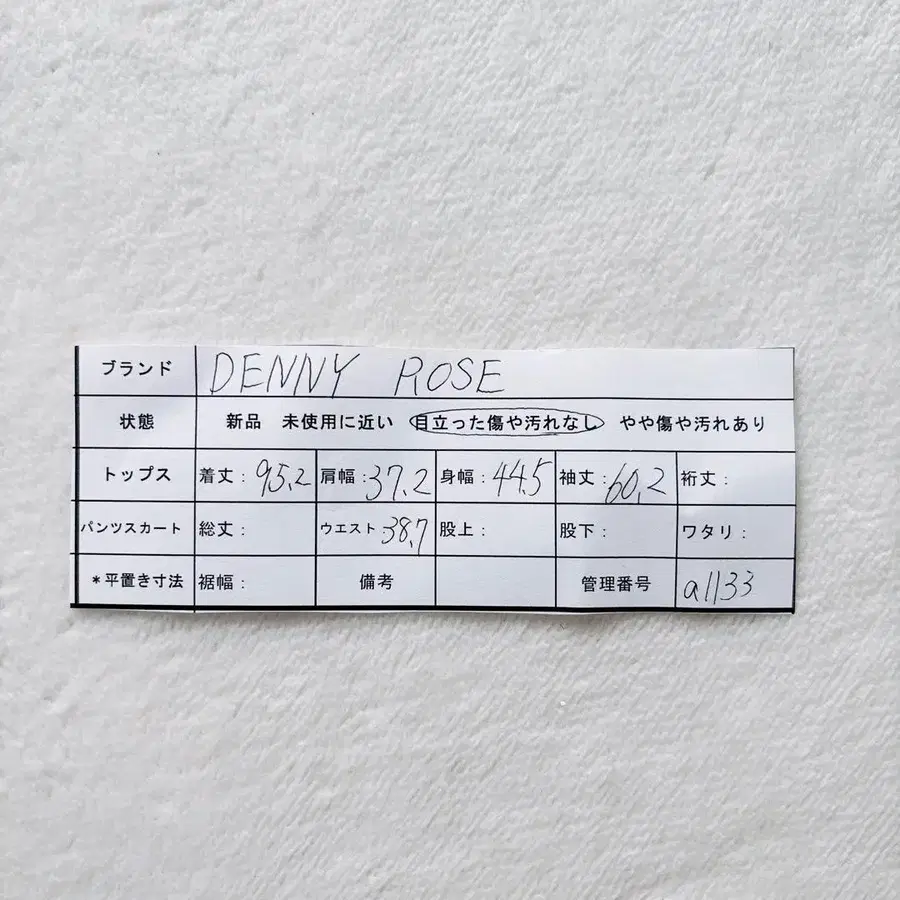 ブランド DENNY ROSE
状態 新品 未使用に近い 目立った傷や汚れなし やや傷や汚れあり
トップス 着丈: 95.2 肩幅: 37.2 身幅: 44.5 袖丈: 60.2 裄丈:
パンツスカート 総丈: ウエスト: 38.7 股上: 股下: ワタリ:
*平置き寸法 裾幅: 備考 管理番号 a1133